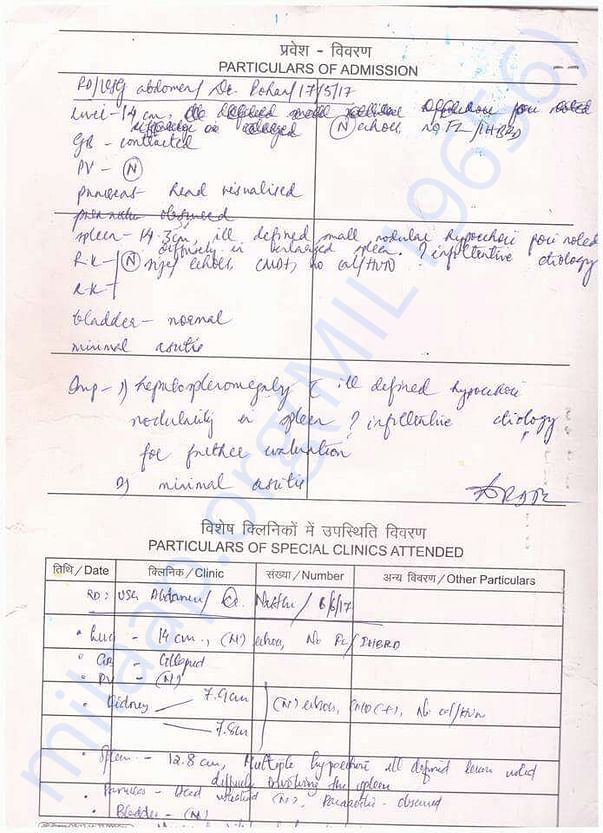 प्रवेश - विवरण
PARTICULARS OF ADMISSION
RD/USG abdomen / Dr. Rohan / 17/5/17
Liver - 14 cm,
(N) echoes, no FL/IHBRD
GB - contracted
PV - (N)
pancreas - head visualised
spleen - 14.3cm, ill defined small nodular hypoechoic foci noted
diffusely in enlarged spleen. ? infiltrative etiology
R.K - (N) size, echoes, CMD+, no cal/HN
L.K -
bladder - normal
minimal ascitis
Imp - 1) hepatosplenomegaly c ill defined hypoechoic
nodularity in spleen ? infiltrative etiology
for further evaluation
2) minimal ascitis
विशेष क्लिनिकों में उपस्थिति विवरण
PARTICULARS OF SPECIAL CLINICS ATTENDED
तिथि / Date क्लिनिक / Clinic संख्या / Number अन्य विवरण / Other Particulars
RD: USG Abdomen / Dr. 6/6/17
• Liver - 14 cm., (N) echoes, No FL/IHBRD
• GB - Collapsed
• PV - (N)
• Kidney 7.9cm (N) echoes, CMD(+), No cal/HN
7.8cm
• Spleen - 12.8 cm, Multiple hypoechoic ill defined lesion noted
diffusely involving the spleen
• Pancreas - Head visualised (N), Paraaortic - obscured
• Bladder - (N)
milaap.org(MIL196956)